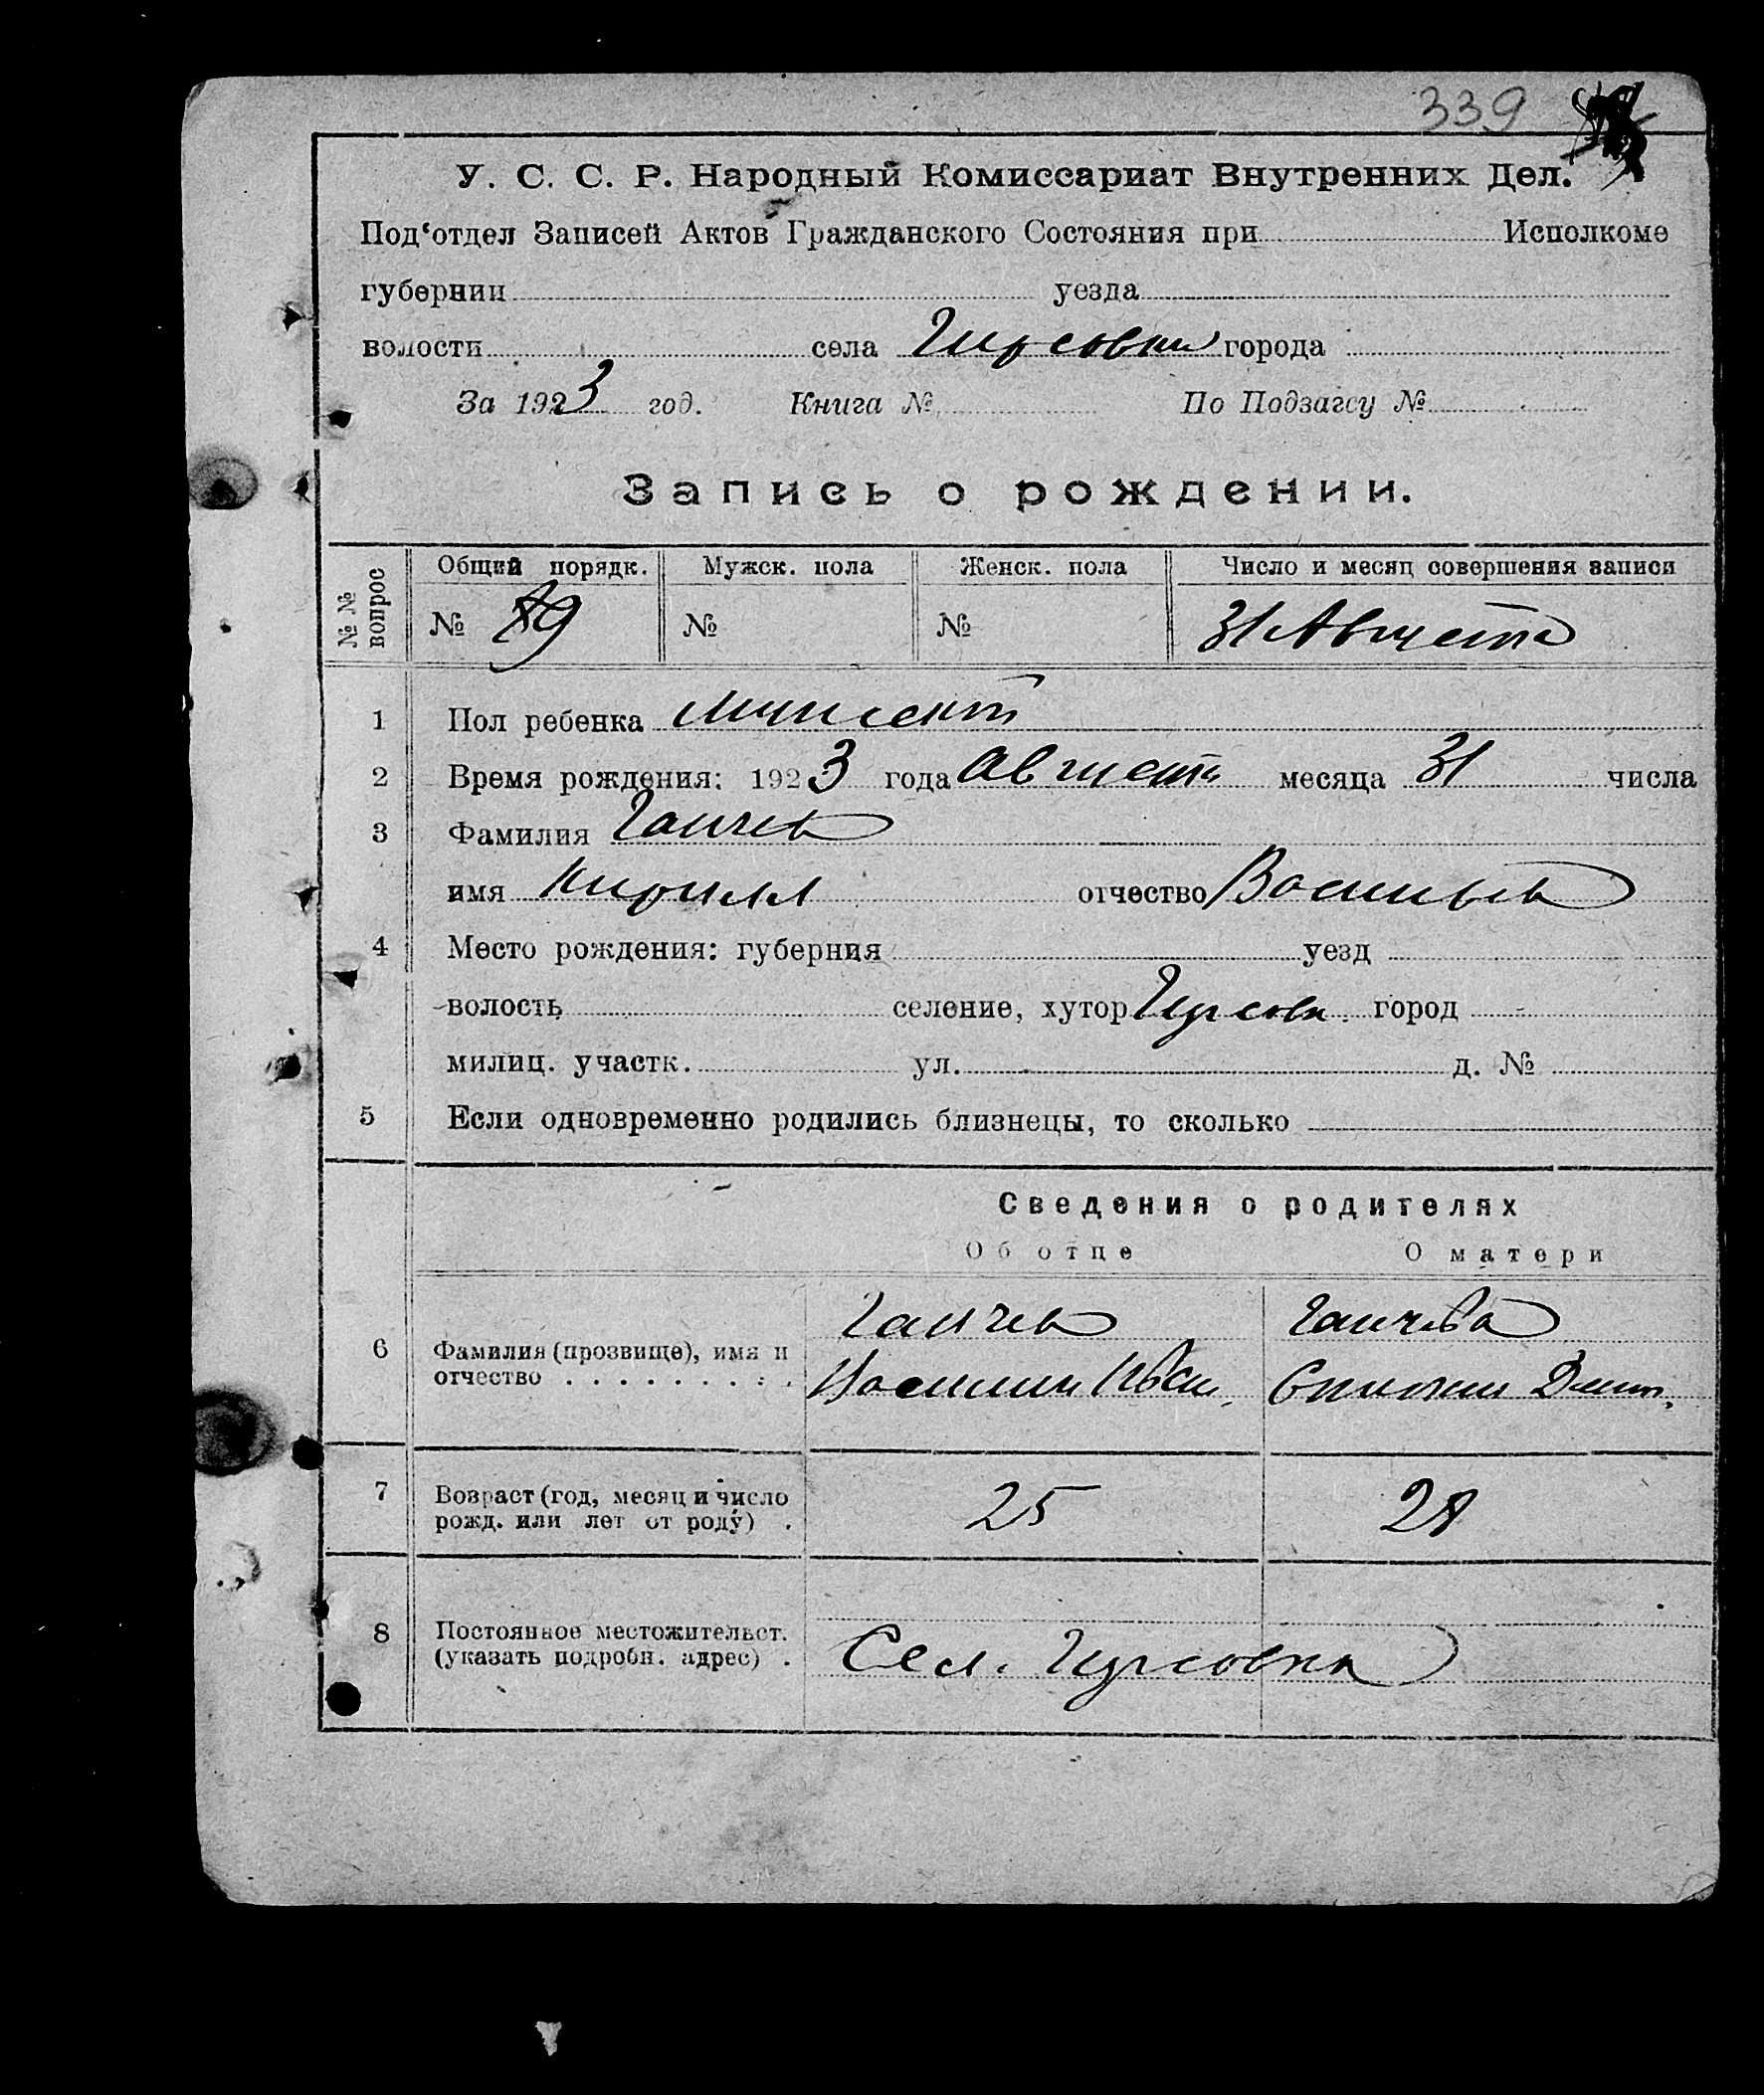 339
У. С. С. Р. Народный Комиссариат Внутренних Дел.
Под‘отдел Записей Актов Гражданского Состояния при Исполкоме
губернии уезда
волости села Гирсовки города
За 1923 год. Книга № По Подзагсу №
Запись о рождении.
№№ вопрос Общий порядк. Мужск. пола Женск. пола Число и месяц совершения записи
№ № № 31 Августа
1 Пол ребенка
2 Время рождения: 1923 года Августа месяца 31 числа
3 Фамилия Ганчев
имя Кирилл отчество Васильев
4 Место рождения: губерния уезд
волость селение, хутор Гирсовк. город
милиц. участк. ул. д. №
5 Если одновременно родились близнецы, то сколько
Сведения о родителях
Об отце О матери
Ганчев Ганчева
6 Фамилия (прозвище), имя и
отчество . . . . . . . . . Василий Иван.
7 Возраст (год, месяц и число
рожд. или лет от роду) . 25
8 Постоянное местожительст.
(указать подробн. адрес) . Сел. Гирсовка